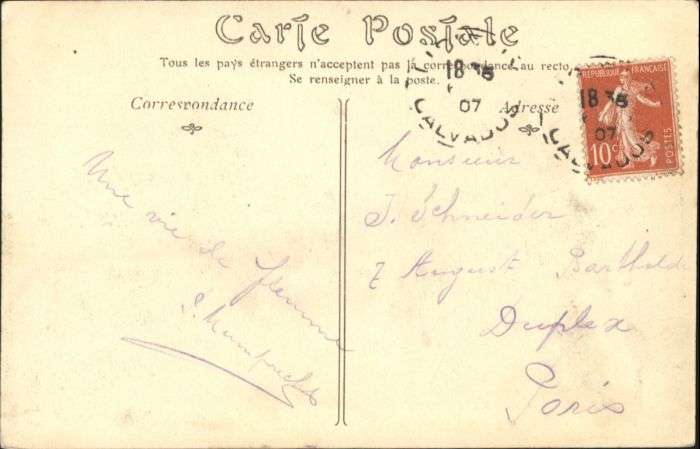 Carte Postale
Tous les pays étrangers n'acceptent pas la correspondance au recto.
Se renseigner à la poste.
Correspondance
Adresse
18 35
07
CALVADOS
18 35
07
CALVADOS
RÉPUBLIQUE FRANÇAISE
10c
POSTES
Une vie de
femme
Monsieur
J. Schneider
7 August Bartholdi
Duplex
Paris